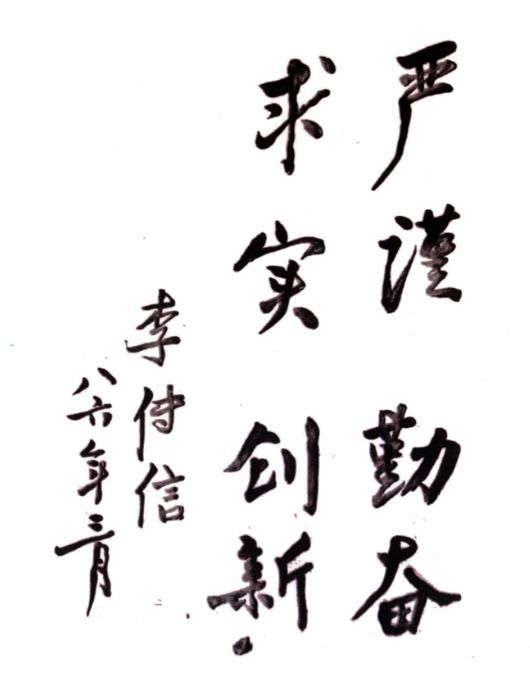 严谨 勤奋
求实 创新.
李传信
八六年三月